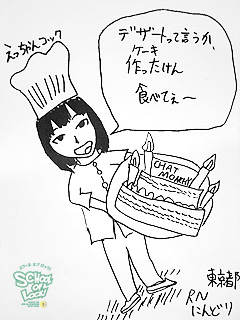 えっちゃんコック
デザートって言うか、
ケーキ
作ったけん
食べてぇ〜
東京都
RN
にんどり
SCHOOL
OF
LOCK!